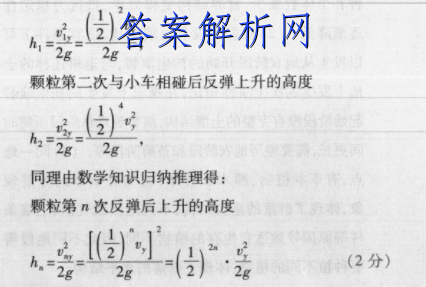 答案解析网
h₁=v₁y²/2g=(1/2)²v_y²/2g
颗粒第二次与小车相碰后反弹上升的高度
h₂=v₂y²/2g=(1/2)⁴v_y²/2g,
同理由数学知识归纳推理得:
颗粒第 n 次反弹后上升的高度
hₙ=v_ny²/2g=[(1/2)ⁿv_y]²/2g=(1/2)²ⁿ·v_y²/2g (2分)